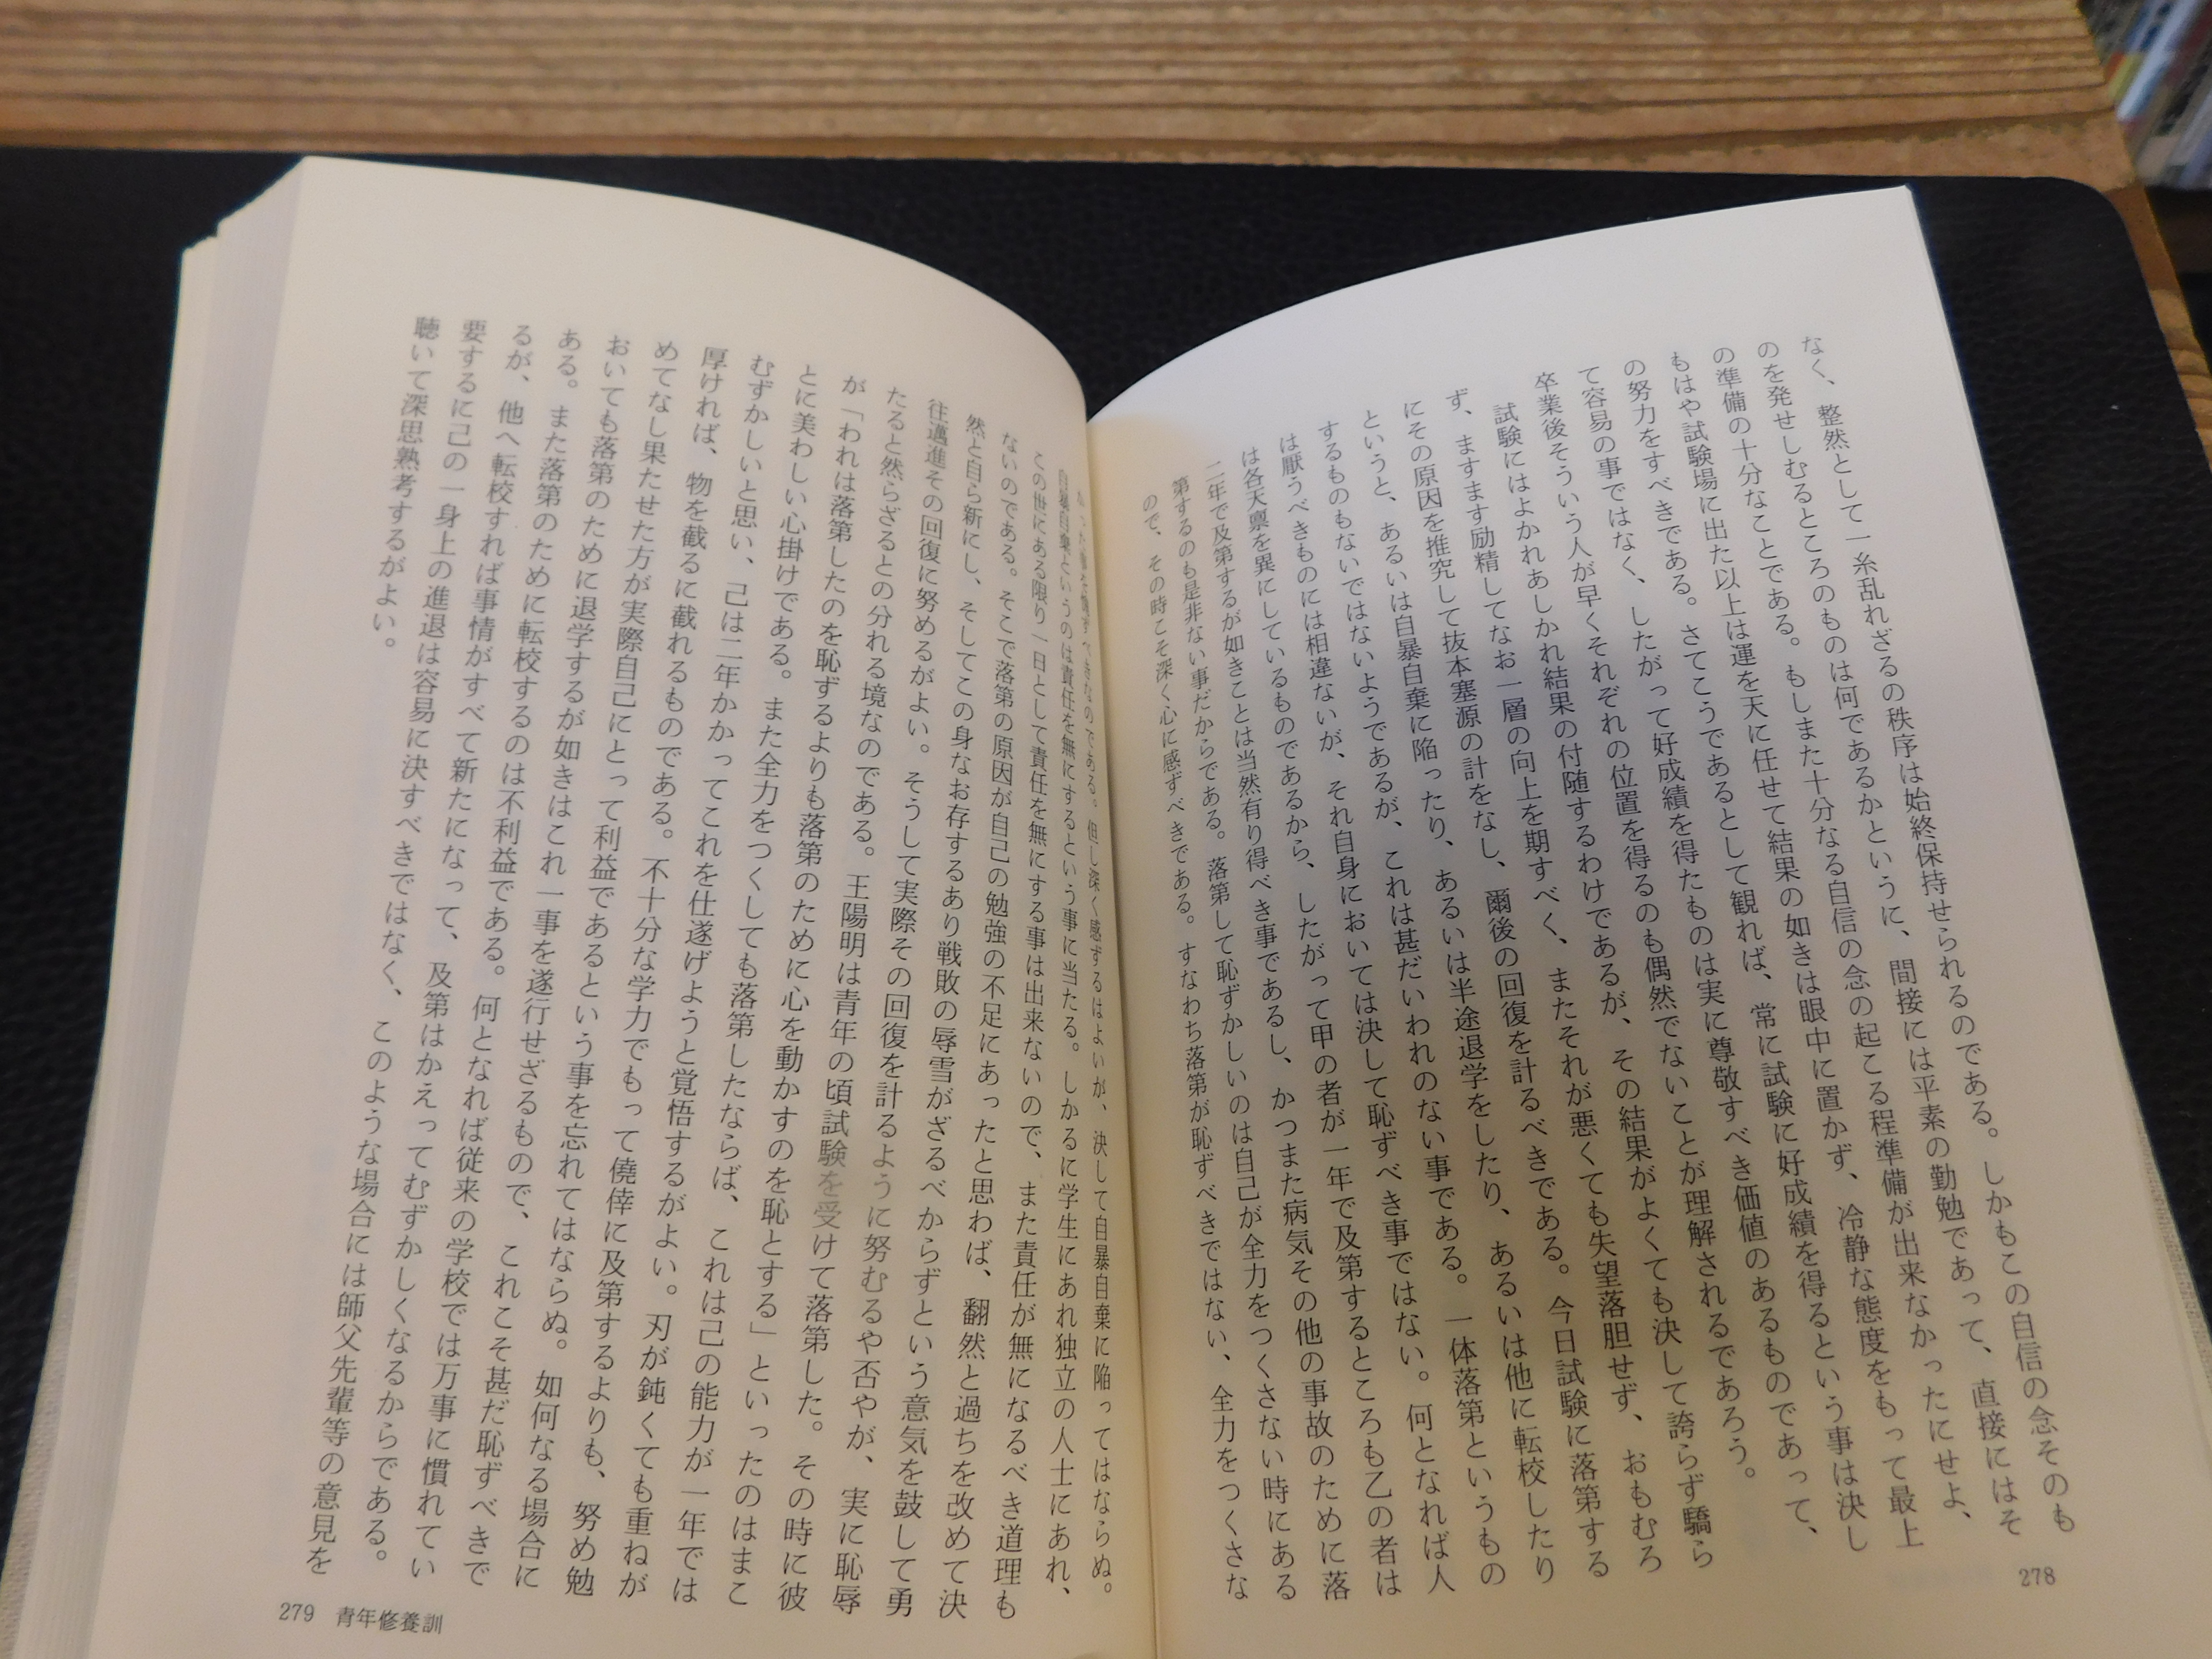 なく、整然として一糸乱れざるの秩序は始終保持せられるのである。しかもこの自信の念そのも
のを発せしむるところのものは何であるかというに、間接には平素の勤勉であって、直接にはそ
の準備の十分なことである。もしまた十分なる自信の念の起こる程準備が出来なかったにせよ、
もはや試験場に出た以上は運を天に任せて結果の如きは眼中に置かず、冷静な態度をもって最上
の努力をすべきである。さてこうであるとして観れば、常に試験に好成績を得るという事は決し
て容易の事ではなく、したがって好成績を得たものは実に尊敬すべき価値のあるものであって、
卒業後そういう人が早くそれぞれの位置を得るのも偶然でないことが理解されるであろう。
試験にはよかれあしかれ結果の付随するわけであるが、その結果がよくても決して誇らず驕ら
ず、ますます励精してなお一層の向上を期すべく、またそれが悪くても失望落胆せず、おもむろ
にその原因を推究して抜本塞源の計をなし、爾後の回復を計るべきである。今日試験に落第する
というと、あるいは自暴自棄に陥ったり、あるいは半途退学をしたり、あるいは他に転校したり
するものもないではないようであるが、これは甚だいわれのない事である。一体落第というもの
は厭うべきものには相違ないが、それ自身においては決して恥ずべき事ではない。何となれば人
は各天禀を異にしているものであるから、したがって甲の者が一年で及第するところも乙の者は
二年で及第するが如きことは当然有り得べき事であるし、かつまた病気その他の事故のために落
第するのも是非ない事だからである。落第して恥ずかしいのは自己が全力をつくさない時にある
ので、その時こそ深く心に感ずべきである。すなわち落第が恥ずべきではない、全力をつくさな
278
べきなのである。但し深く感ずるはよいが、決して自暴自棄に陥ってはならぬ。
自暴自棄というのは責任を無にするという事に当たる。しかるに学生にあれ独立の人士にあれ、
この世にある限り一日として責任を無にする事は出来ないので、また責任が無になるべき道理も
ないのである。そこで落第の原因が自己の勉強の不足にあったと思わば、翻然と過ちを改めて決
然と自ら新にし、そしてこの身なお存するあり戦敗の辱雪がざるべからずという意気を鼓して勇
往邁進その回復に努めるがよい。そうして実際その回復を計るように努むるや否やが、実に恥辱
たると然らざるとの分れる境なのである。王陽明は青年の頃試験を受けて落第した。その時に彼
が「われは落第したのを恥ずるよりも落第のために心を動かすのを恥とする」といったのはまこ
とに美わしい心掛けである。また全力をつくしても落第したならば、これは己の能力が一年では
むずかしいと思い、己は二年かかってこれを仕遂げようと覚悟するがよい。刃が鈍くても重ねが
厚ければ、物を截るに截れるものである。不十分な学力でもって僥倖に及第するよりも、努め勉
めてなし果たせた方が実際自己にとって利益であるという事を忘れてはならぬ。如何なる場合に
おいても落第のために退学するが如きはこれ一事を遂行せざるもので、これこそ甚だ恥ずべきで
ある。また落第のために転校するのは不利益である。何となれば従来の学校では万事に慣れてい
るが、他へ転校すれば事情がすべて新たになって、及第はかえってむずかしくなるからである。
要するに己の一身上の進退は容易に決すべきではなく、このような場合には師父先輩等の意見を
聴いて深思熟考するがよい。
279 青年修養訓